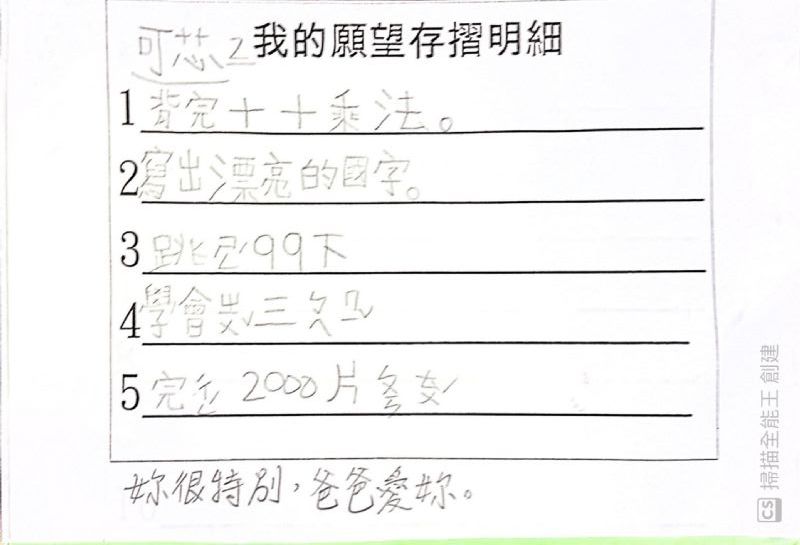 可芯ㄉ我的願望存摺明細
1 背完十十乘法。
2 寫出漂亮的國字。
3 跳ㄕㄥˊ99下
4 學會炭三ㄆㄡ
5 完 2000片
妳很特別，爸爸愛妳。
CS 掃描全能王 創建